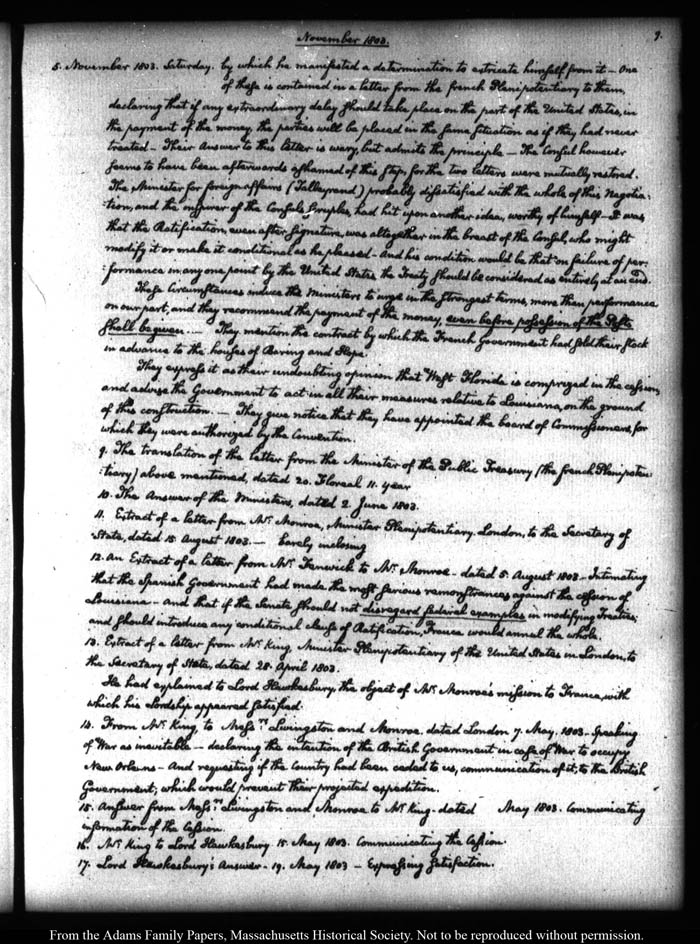 November 1803.
9.
5. November 1803. Saturday. by which he manifested a determination to extricate himself from it — One
of these is contained in a letter from the french Plenipotentiary to them,
declaring that if any extraordinary delay should take place on the part of the United States, in
the payment of the money, the parties will be placed in the same situation as if they had never
treated — Their Answer to this letter is wary, but admits the principle — The Consul however
seems to have been afterwards ashamed of this step, for the two letters were mutually restored.
The Minister for foreign affairs (Talleyrand) probably dissatisfied with the whole of this Negotia:
:tion, and the manner of the Consul's scruples, had hit upon another idea, worthy of himself — It was
that the Ratification, even after signature, was altogether in the breast of the Consul, who might
modify it or make it conditional as he pleased — And his condition would be that on failure of per:
:formance in any one point by the United States the Treaty should be considered as entirely at an end.
These Circumstances induce the Ministers to urge in the strongest terms, more than performance
on our part, and they recommend the payment of the money, even before possession of the Posts
shall be given. — They mention the contract by which the French Government had sold their stock
in advance to the houses of Baring and Hope
They express it as their undoubting opinion that West Florida is comprized in the cession,
and advise the Government to act in all their measures relative to Louisiana, on the ground
of this construction. — They give notice that they have appointed the board of Commissioners, for
which they were authorized by the Convention.
9. The translation of the letter from the Minister of the Public Treasury (the french Plenipoten
:tiary) above mentioned, dated 20. Floreal 11. year
10. The Answer of the Ministers, dated 2 June 1803.
11. Extract of a letter from Mr. Monroe, Minister Plenipotentiary. London, to the Secretary of
State, dated 15 August 1803. — barely inclosing
12. An Extract of a letter from Mr. Fenwick to Mr. Monroe — dated 5. August 1803 — Intimating
that the Spanish Government had made the most serious remonstrances against the cession of
Louisiana — And that if the Senate should not disregard federal examples in modifying Treaties,
and should introduce any conditional clause of Ratification, France would annul the whole.
13. Extract of a letter from Mr. King, Minister Plenipotentiary of the United States in London, to
the Secretary of State, dated 28. April 1803.
He had explained to Lord Hawkesbury, the object of Mr. Monroe's mission to France, with
which his Lordship appeared satisfied.
14. From Mr. King, to Messrs. Livingston and Monroe, dated London 7. May. 1803. Speaking
of War as inevitable — declaring the intention of the British Government in case of War to occupy
New Orleans — And requesting if the Country had been ceded to us, communication of it, to the British
Government; which would prevent their projected expedition.
15. Answer from Messrs. Livingston and Monroe to Mr. King — dated May 1803. Communicating
information of the Cession.
16. Mr. King to Lord Hawkesbury. 15. May 1803. Communicating the Cession.
17. Lord Hawkesbury's Answer — 19. May 1803 — Expressing satisfaction.
From the Adams Family Papers, Massachusetts Historical Society. Not to be reproduced without permission.